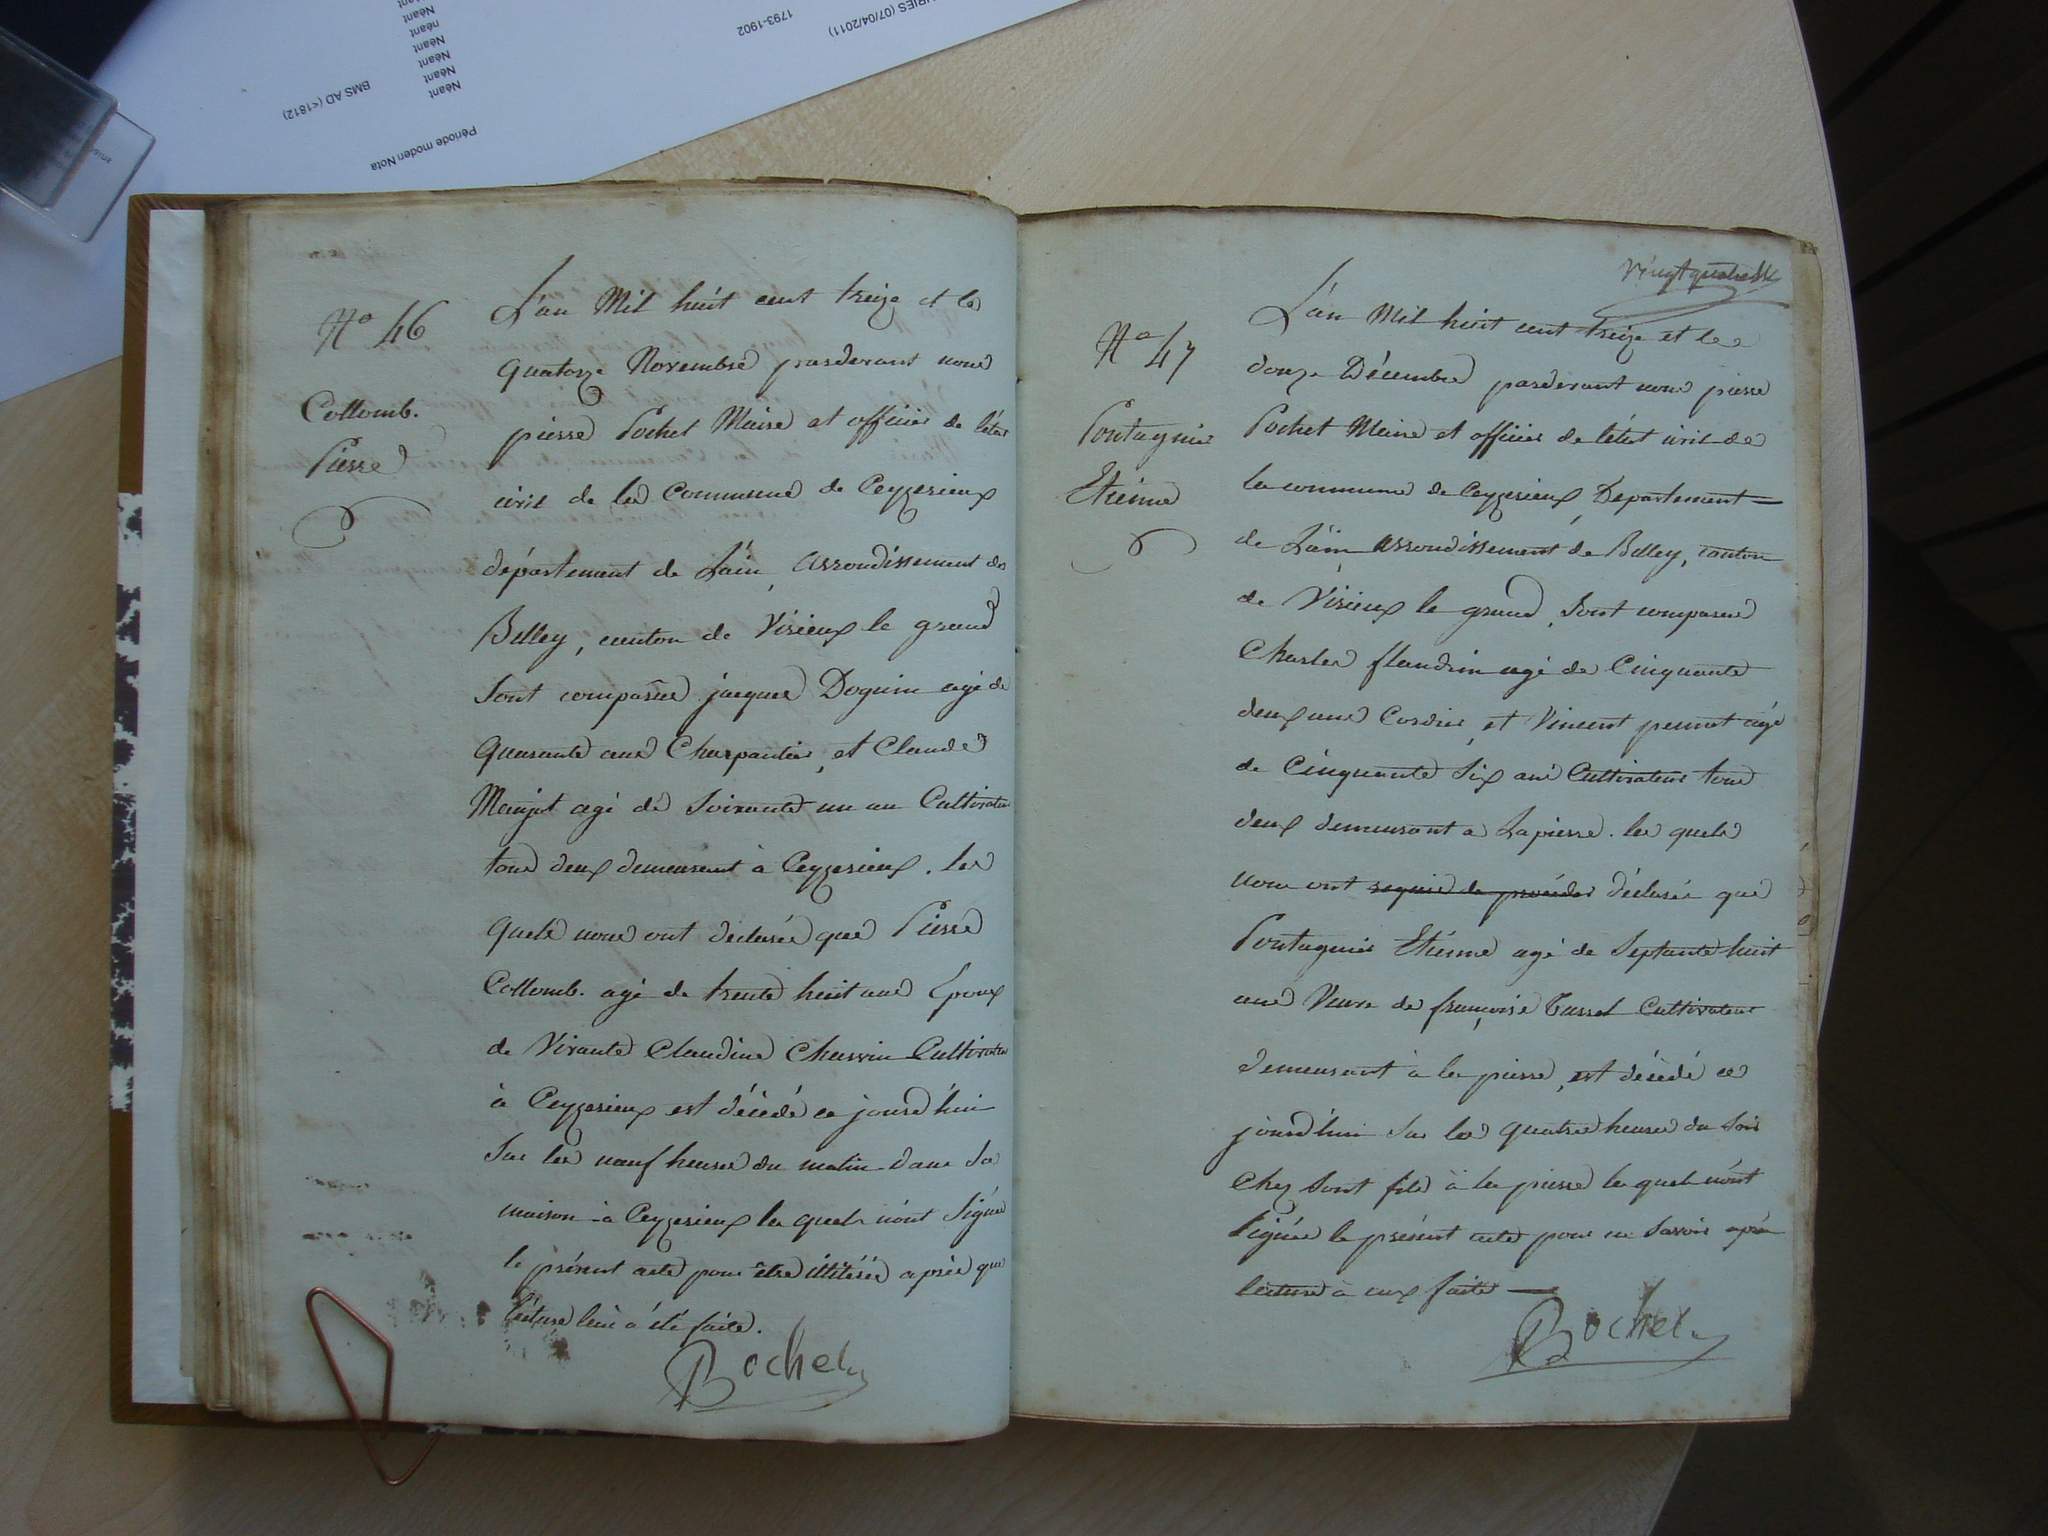 URIES (07/04/2011)
1793-1902
Néant
Néant
néant
Néant
Néant
Néant
Néant
BMS AD (<1812)
Période moder Nota
N° 46
Collomb.
Pierre
L'an Mil huit cent treize et le
quatorze Novembre pardevant nous
pierre Pochet Maire et officier de l'état
civil de la Commune de Ceyzerieux
département de L'ain, arrondissement de
Belley, canton de Virieux le grand
Sont comparus jacques Doguin agé de
quarante ans Charpantier, et Claude
agé de Soixante un an Cultivateur
tous deux demeurant à Ceyzerieux. les
quels nous ont declarée que Pierre
Collomb. agé de trente huit ans Epoux
de Vivante Claudine Charvin Cultivateur
à Ceyzerieux est décédé ce jourd'hui
Sur les neuf heures du matin dans Sa
maison à Ceyzerieux les quels n'ont Signée
le présent acte pour être illitérés après que
lecture leur à été faite.
Bochet
vingt quatre
N° 47
Pontagnier
Etienne
L'an Mil huit cent treize et le
douze Décembre pardevant nous pierre
Pochet Maire et officier de l'état civil de
la commune de Ceyzerieux, Departement
de L'ain arrondissement de Belley, canton
de Virieux le grand, Sont comparus
Charles flandrin agé de Cinquante
deux ans Cordier, et Vincent pernet agé
de Cinquante Six ans Cultivateur tous
deux demeurant a Lapierre. les quels
nous ont requis de procéder déclarée que
Pontagnier Etienne agé de Septante huit
ans Veuve de françoise Cultivateur
demeurant à la pierre, est décédé ce
jourd'hui Sur les quatre heures du Soir
Chez Sont fils à la pierre les quels n'ont
Signée le présent acte pour ne Savoir après
lecture à eux faite
Bochet